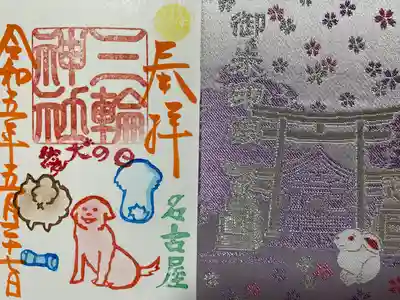 奉拝
三輪神社
愛犬の日
名古屋
令和五年五月二十七日
御朱印帳